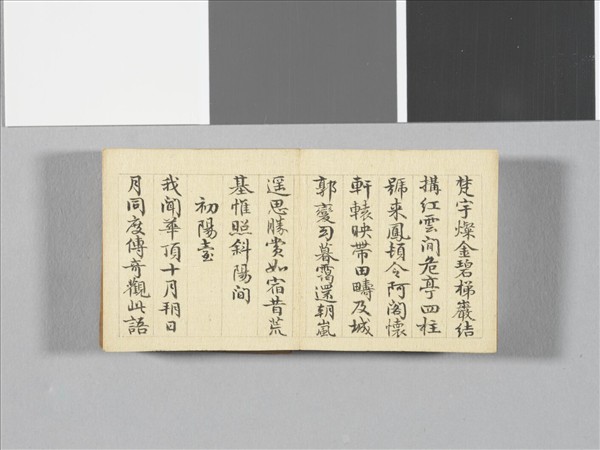 梵宇燦金碧梯巖結
搆紅雲間危亭四柱
號来鳳頓令阿閣懐
軒轅映帶田疇及城
郭變幻暮靄還朝嵐
遥思勝賞如宿昔荒
基惟照斜陽間
初陽臺
我聞華頂十月朔日
月同度傳奇觀此語